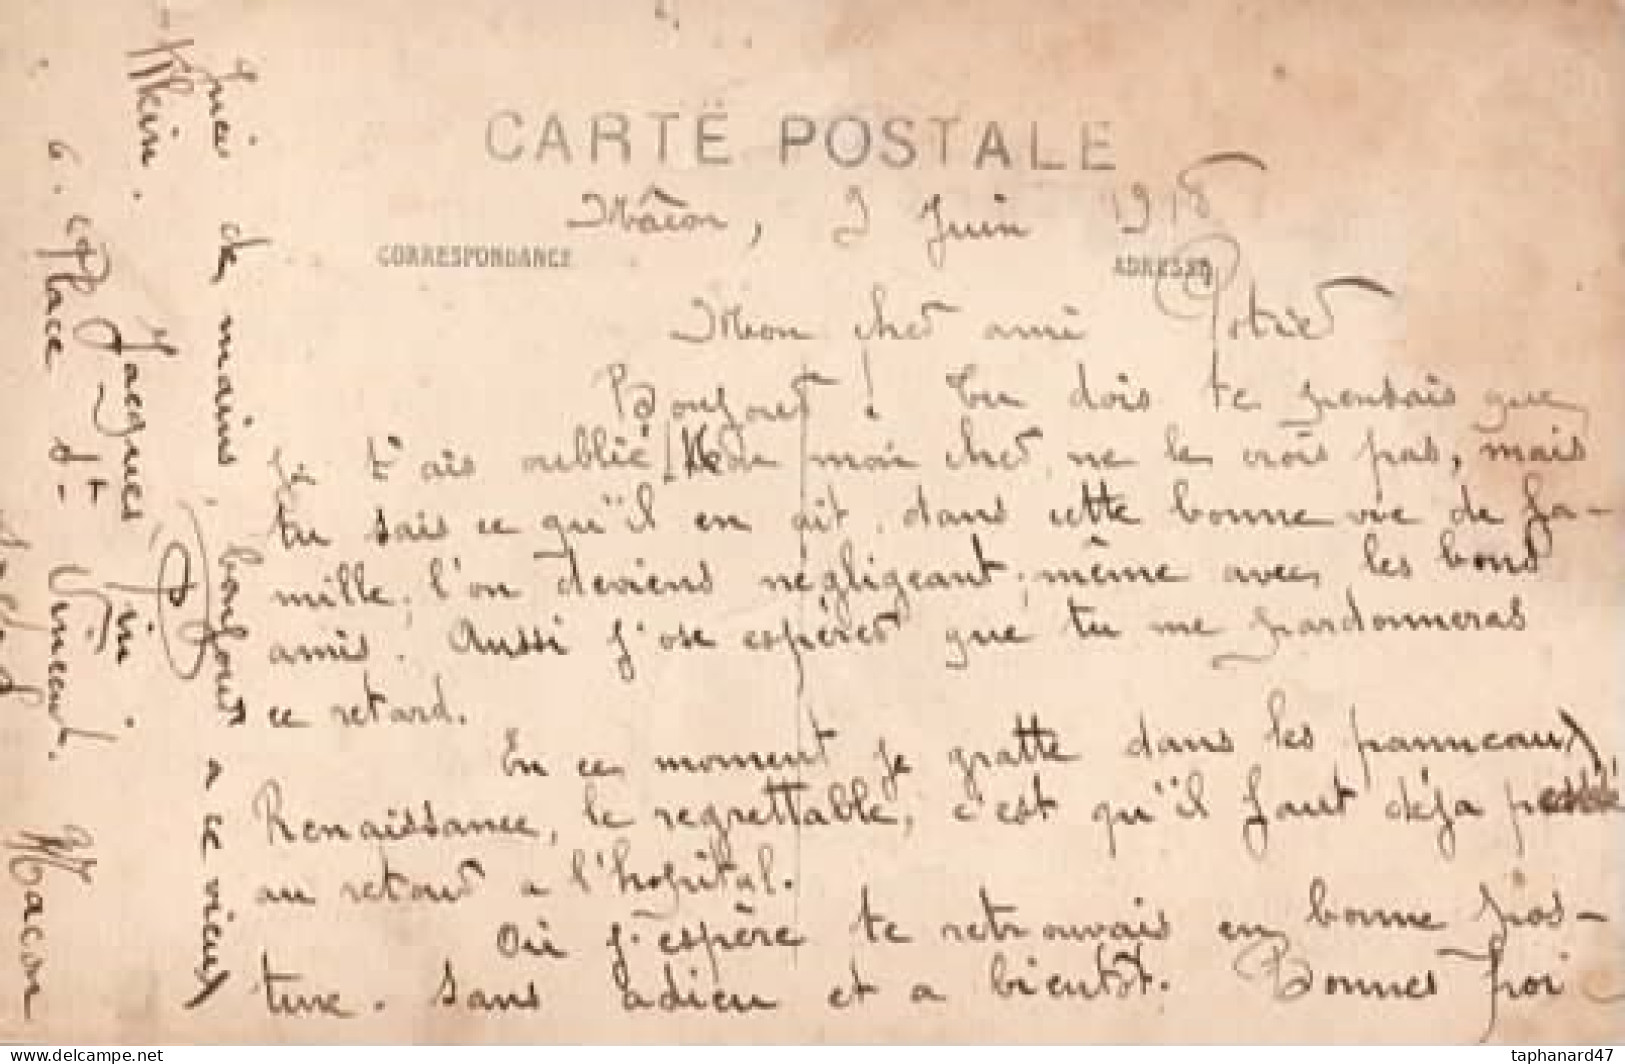 CARTE POSTALE
Mâcon, 9 Juin 1918
CORRESPONDANCE
ADRESSE
Mon cher ami
Bonjour! Tu dois te pensais que
je t'ais oublié! Non mon cher, ne le crois pas, mais
tu sais ce qu'il en ait, dans cette bonne vie de fa-
mille, l'on deviens négligeant, même avec les bons
amis. Aussi j'ose espérer que tu me pardonneras
ce retard.
En ce moment je gratte dans les panneaux
Renaissance, le regrettable, c'est qu'il faut déja
au retour a l'hopital.
Où j'espère te retrouvais en bonne pos-
ture. Sans adieu et a bientôt. Bonnes poi
gnés de mains, bonjour a ce vieux
Klein.
Jacques
6. Place St Vincent. Macon
taphanard47